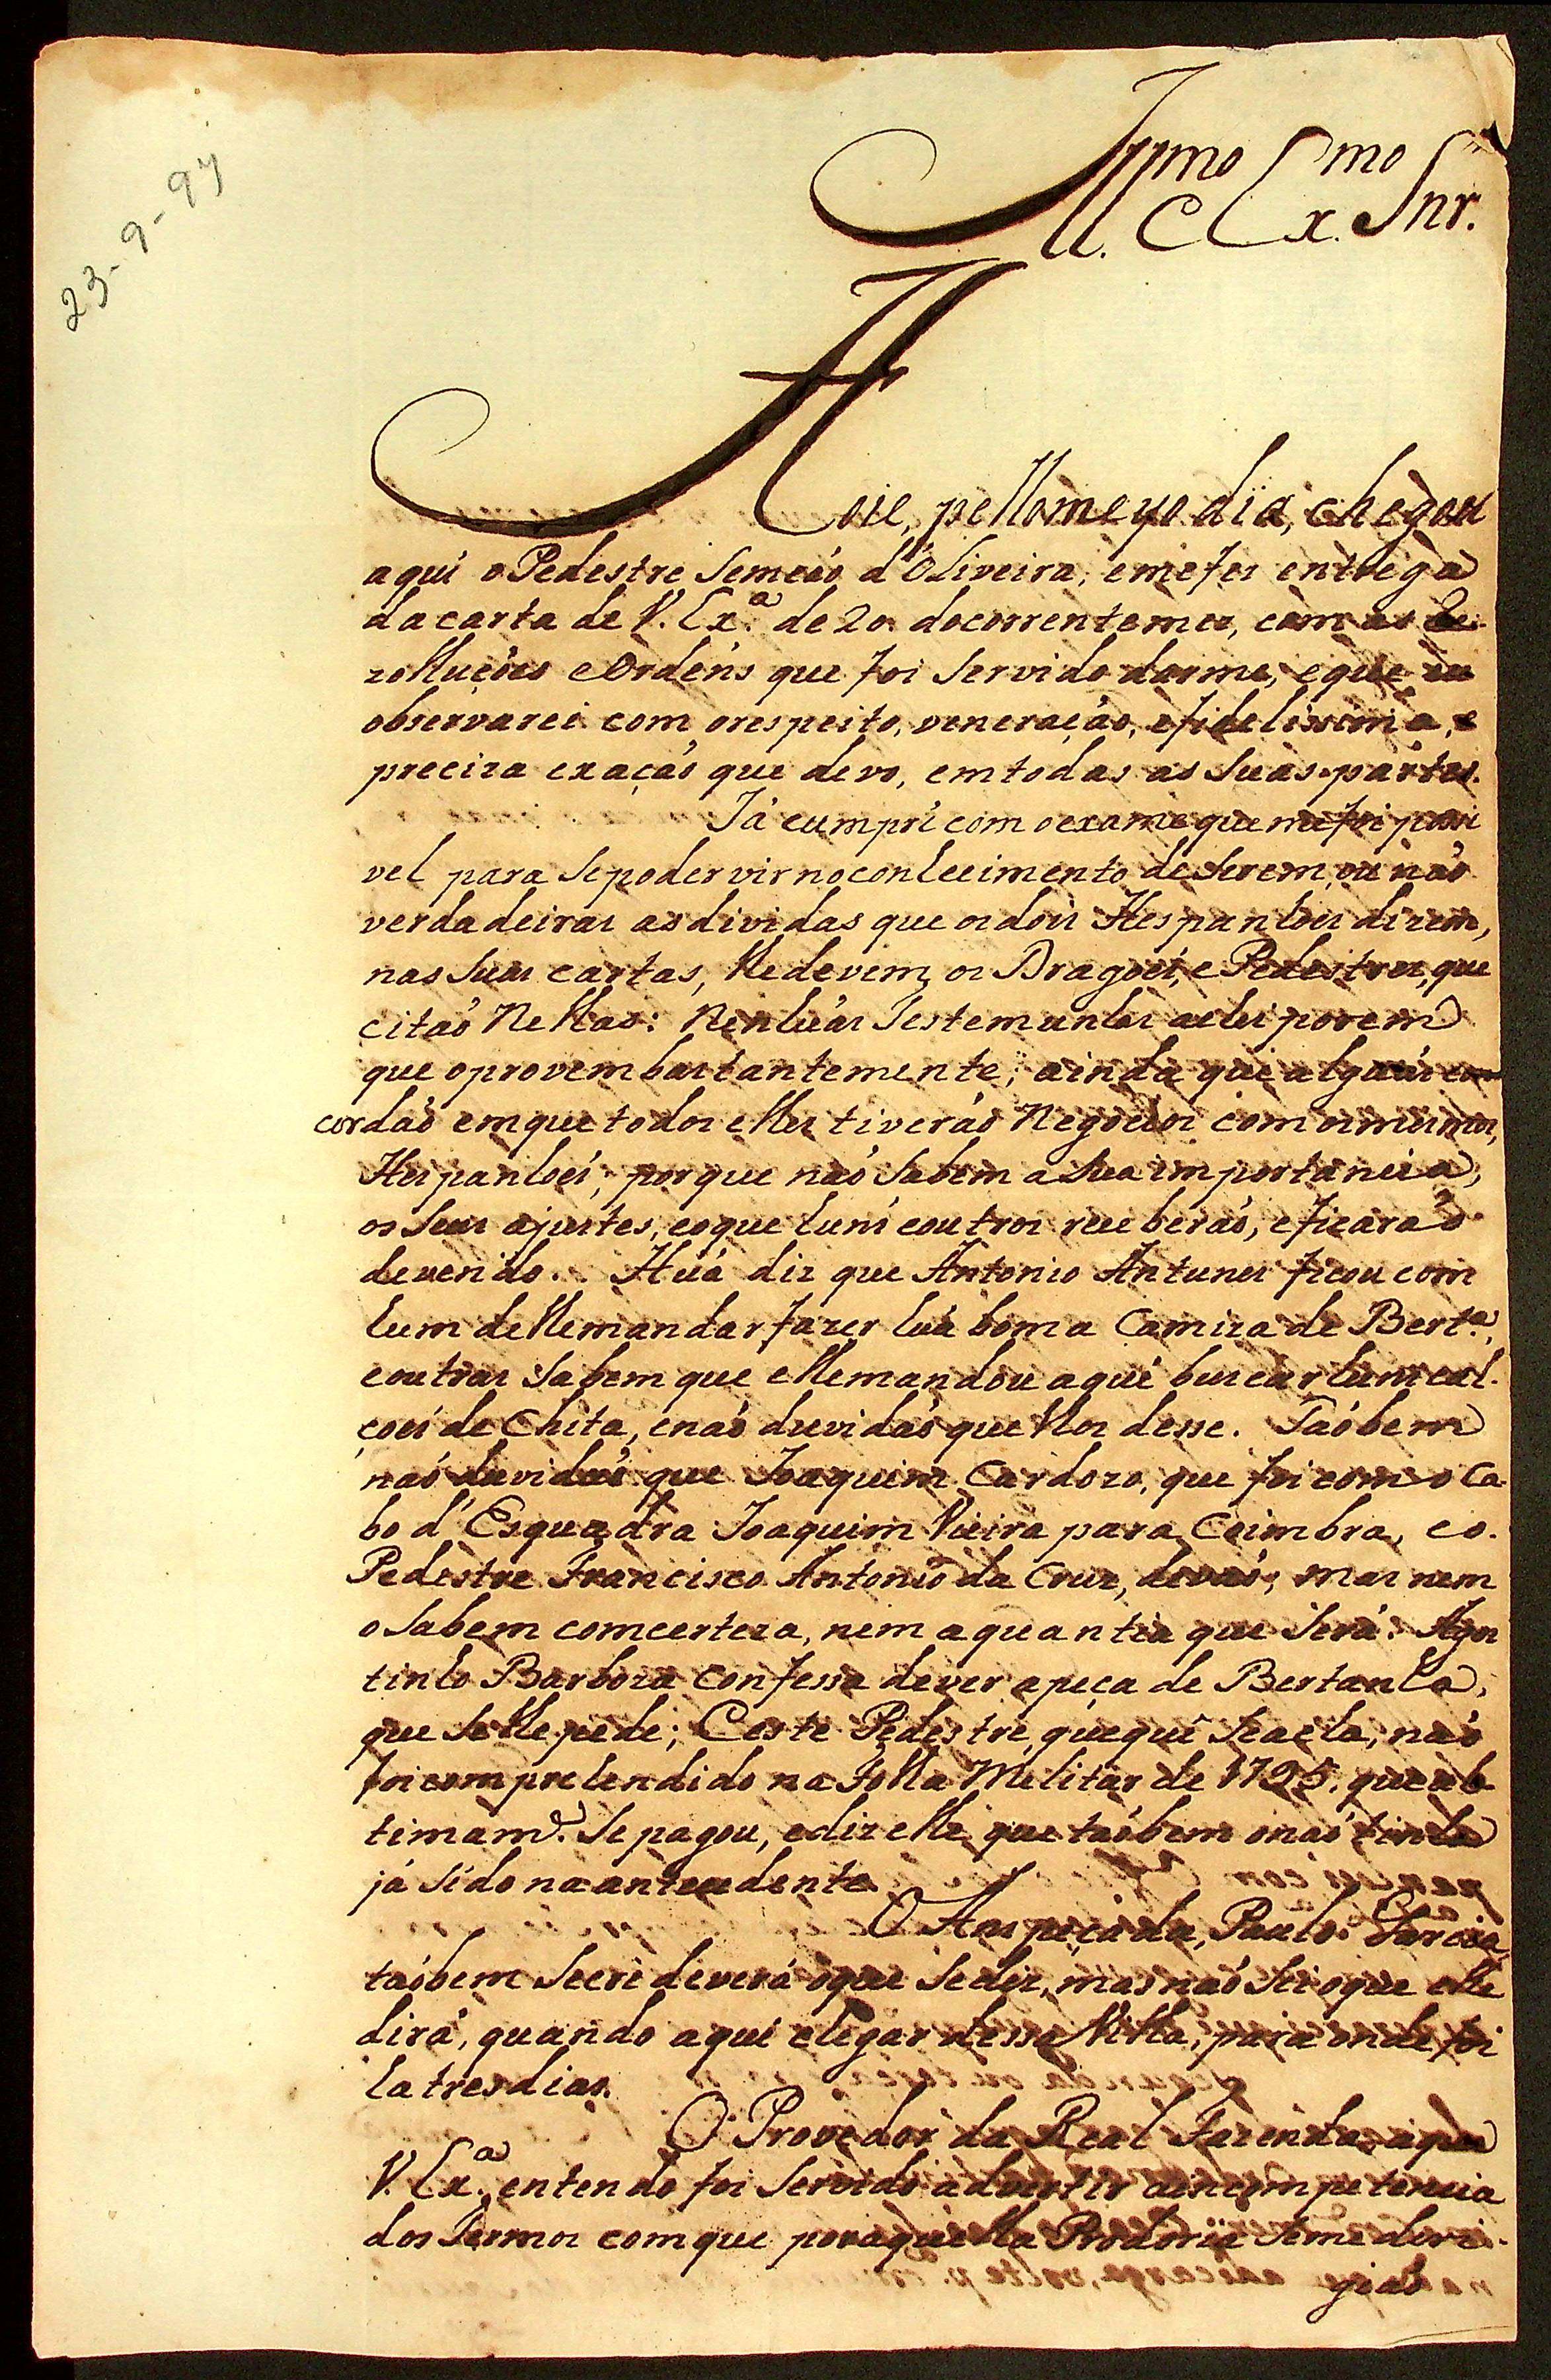 23-9-97
Illmo e Exmo Snr.
Hoie, pello meyo dia, chegou
aqui o Pedestre Semeáo d'Oliveira; e me fes entrega
da carta de V. Exa. de 20 do corrente mes, com as Re-
zolluções e Ordens que foi Servido darme, e que eu
observarei com o respeito, veneração, e fidelissima, e
preciza exação que devo, em todas as Suas partes.
Já cumpri com o exame que me foi posi
vel para Se poder vir no conhecimento de Serem, ou não
verdadeiras as dividas que os dois Hespanhoes dizem,
nas Suas cartas, lhe devem, os Dragoes, e Pedestres, que
citão nellas: nenhuas Testemunhas achei porem
que o provem bastantemente; ainda que alguas con
cordão em que todos elles tiverão Negocios com os mesmos
Hespanhoes; porque não Sabem a Sua importancia,
os Seus ajustes, e o que huns e outros receberão, e ficarão
devendo. Hua diz que Antonio Antunes ficou com
hum de lhe mandar fazer hua boma Camiza de Berta.,
e outras Sabem que elle mandou aqui buscar huns cal-
çoes de Chita, e não duvidão que lhos desse. Taobem
não duvidão que Joaquim Cardozo, que foi com o Ca-
bo d'Esquadra Joaquim Vieira para Coimbra, e o
Pedestre Francisco Antonio da Cruz, devão; mas nem
o Sabem com certeza, nem a quantia que Será: Agos
tinho Barboza confessa dever a peça de Bertanha,
que Se lhe pede; E este Pedestre, que qui Se acha, não
foi comprehendido na Folha Melitar de 1795, que ul-
timamte. Se pagou, e diz elle que taobem o não tinha
já Sido na antecedente.
O Anspeçada, Paulo Garcia
taobem Se cre deverá o que Se diz, mas não Sei o que elle
dirá, quando aqui chegar dessa Villa, para onde foi
ha tres dias.
O Provedor da Real Fazenda, a quem
V. Exa. entendo foi Servido advertir a incompetencia
dos Termos com que por aquella Prodoria Se me deri-
gião